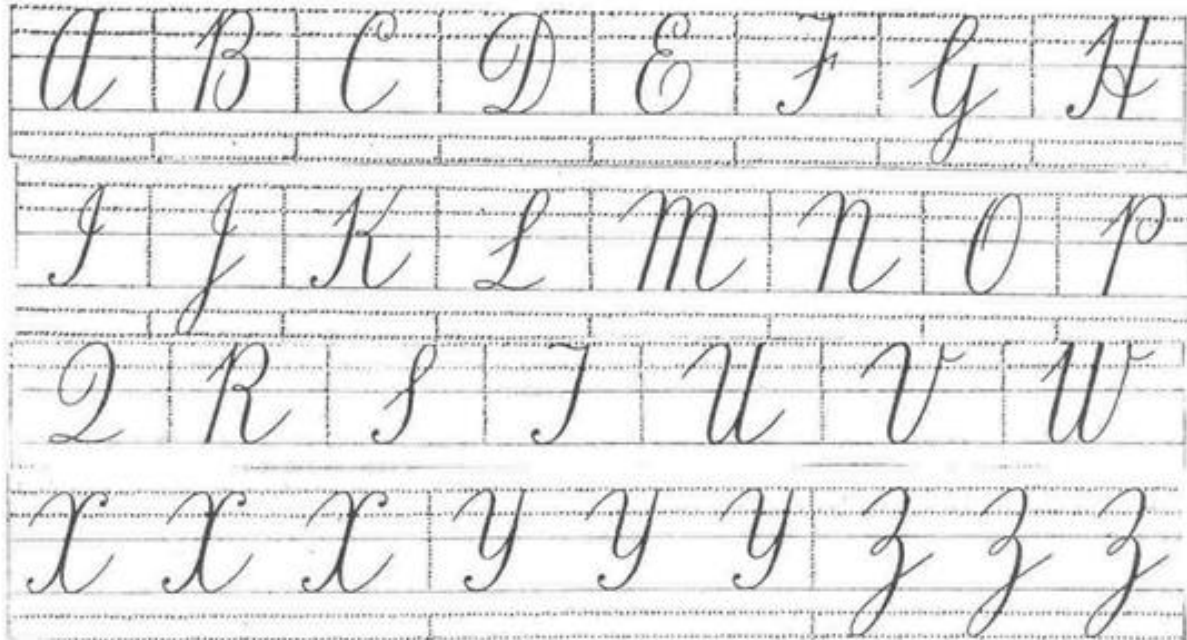 A B C D E F G H
I J K L M N O P
Q R S T U V W
X X X Y Y Y Z Z Z